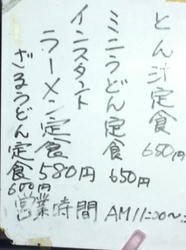 とん汁定食
650円
ミニうどん定食
650円
インスタント
ラーメン定食
580円
ざるうどん定食
600円
営業時間 AM11:00~